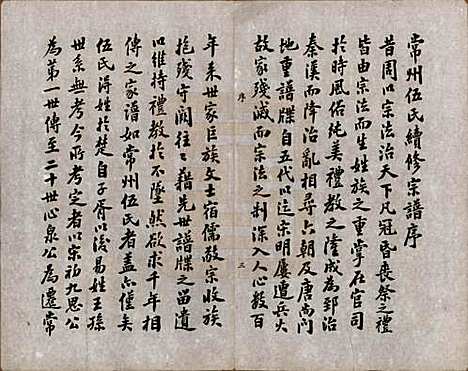 常州伍氏續修宗譜序
昔周以宗法治天下凡冠昏喪祭之禮
皆由宗法而生姓族之重掌在官司
於時風俗純美禮教之隆成為郅治
秦漢而降治亂相尋六朝及唐尚門
地重譜牒自五代以迄宋明屢遭兵火
故家殘滅而宗法之制深入人心數百
序
三
年來世家巨族文士宿儒敬宗收族
抱殘守闕往往藉先世譜牒之留遺
以維持禮教於不墜然欲求千年相
傳之家譜如常州伍氏者蓋亦僅矣
伍氏得姓於楚自子胥以後易姓王孫
世系無考今所考定者以宋初九思公
為第一世傳至二十世心泉公為遷常